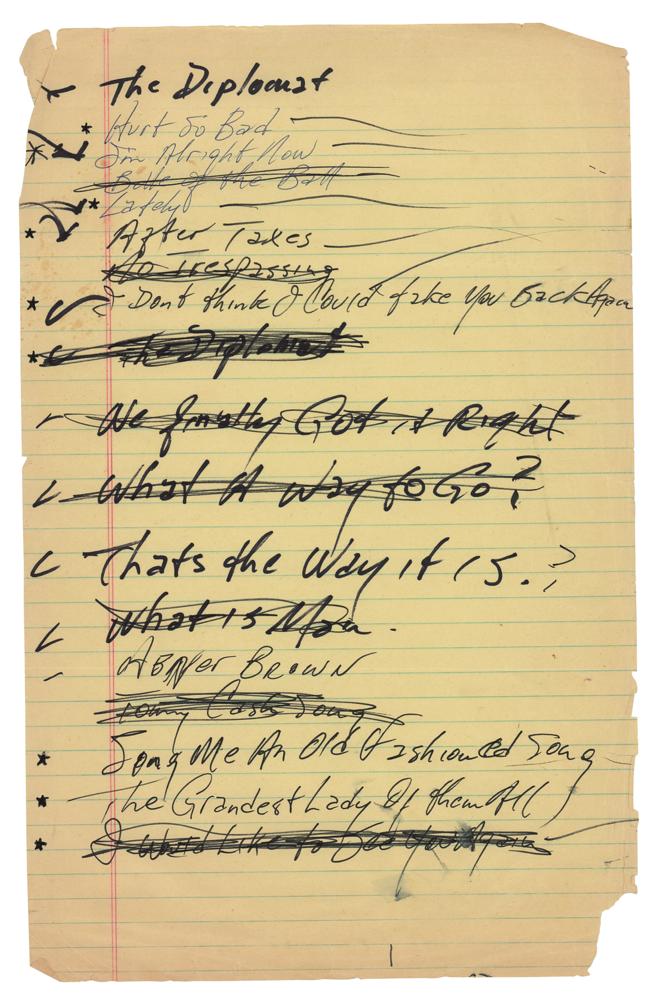 The Diplomat
Hurt So Bad
I'm Alright Now
Belle of the Ball
Lately
After Taxes
No Trespassing
I Dont think I Could take You Back Again
The Diplomat
We finally Got it Right
What A Way to Go?
Thats the Way it is.?
What is Man.
ABNer BROWN
Tommy Cash Song
Song Me An Old Fashioned Song
The Grandest Lady Of them All
I Would Like to See You Again